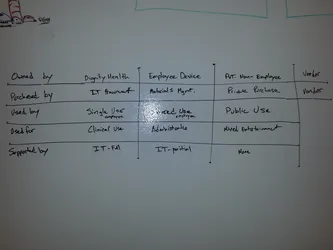 Owned by Dignity Health Employee Device Pvt. Non-Employee Vendor
Purchased by IT Materials Mgmt. Purchase Vendor
Used by Single User Use Public Use
employee employee
Used for Clinical Use Administrative Mixed Entertainment
Supported by IT-Full IT-partial None